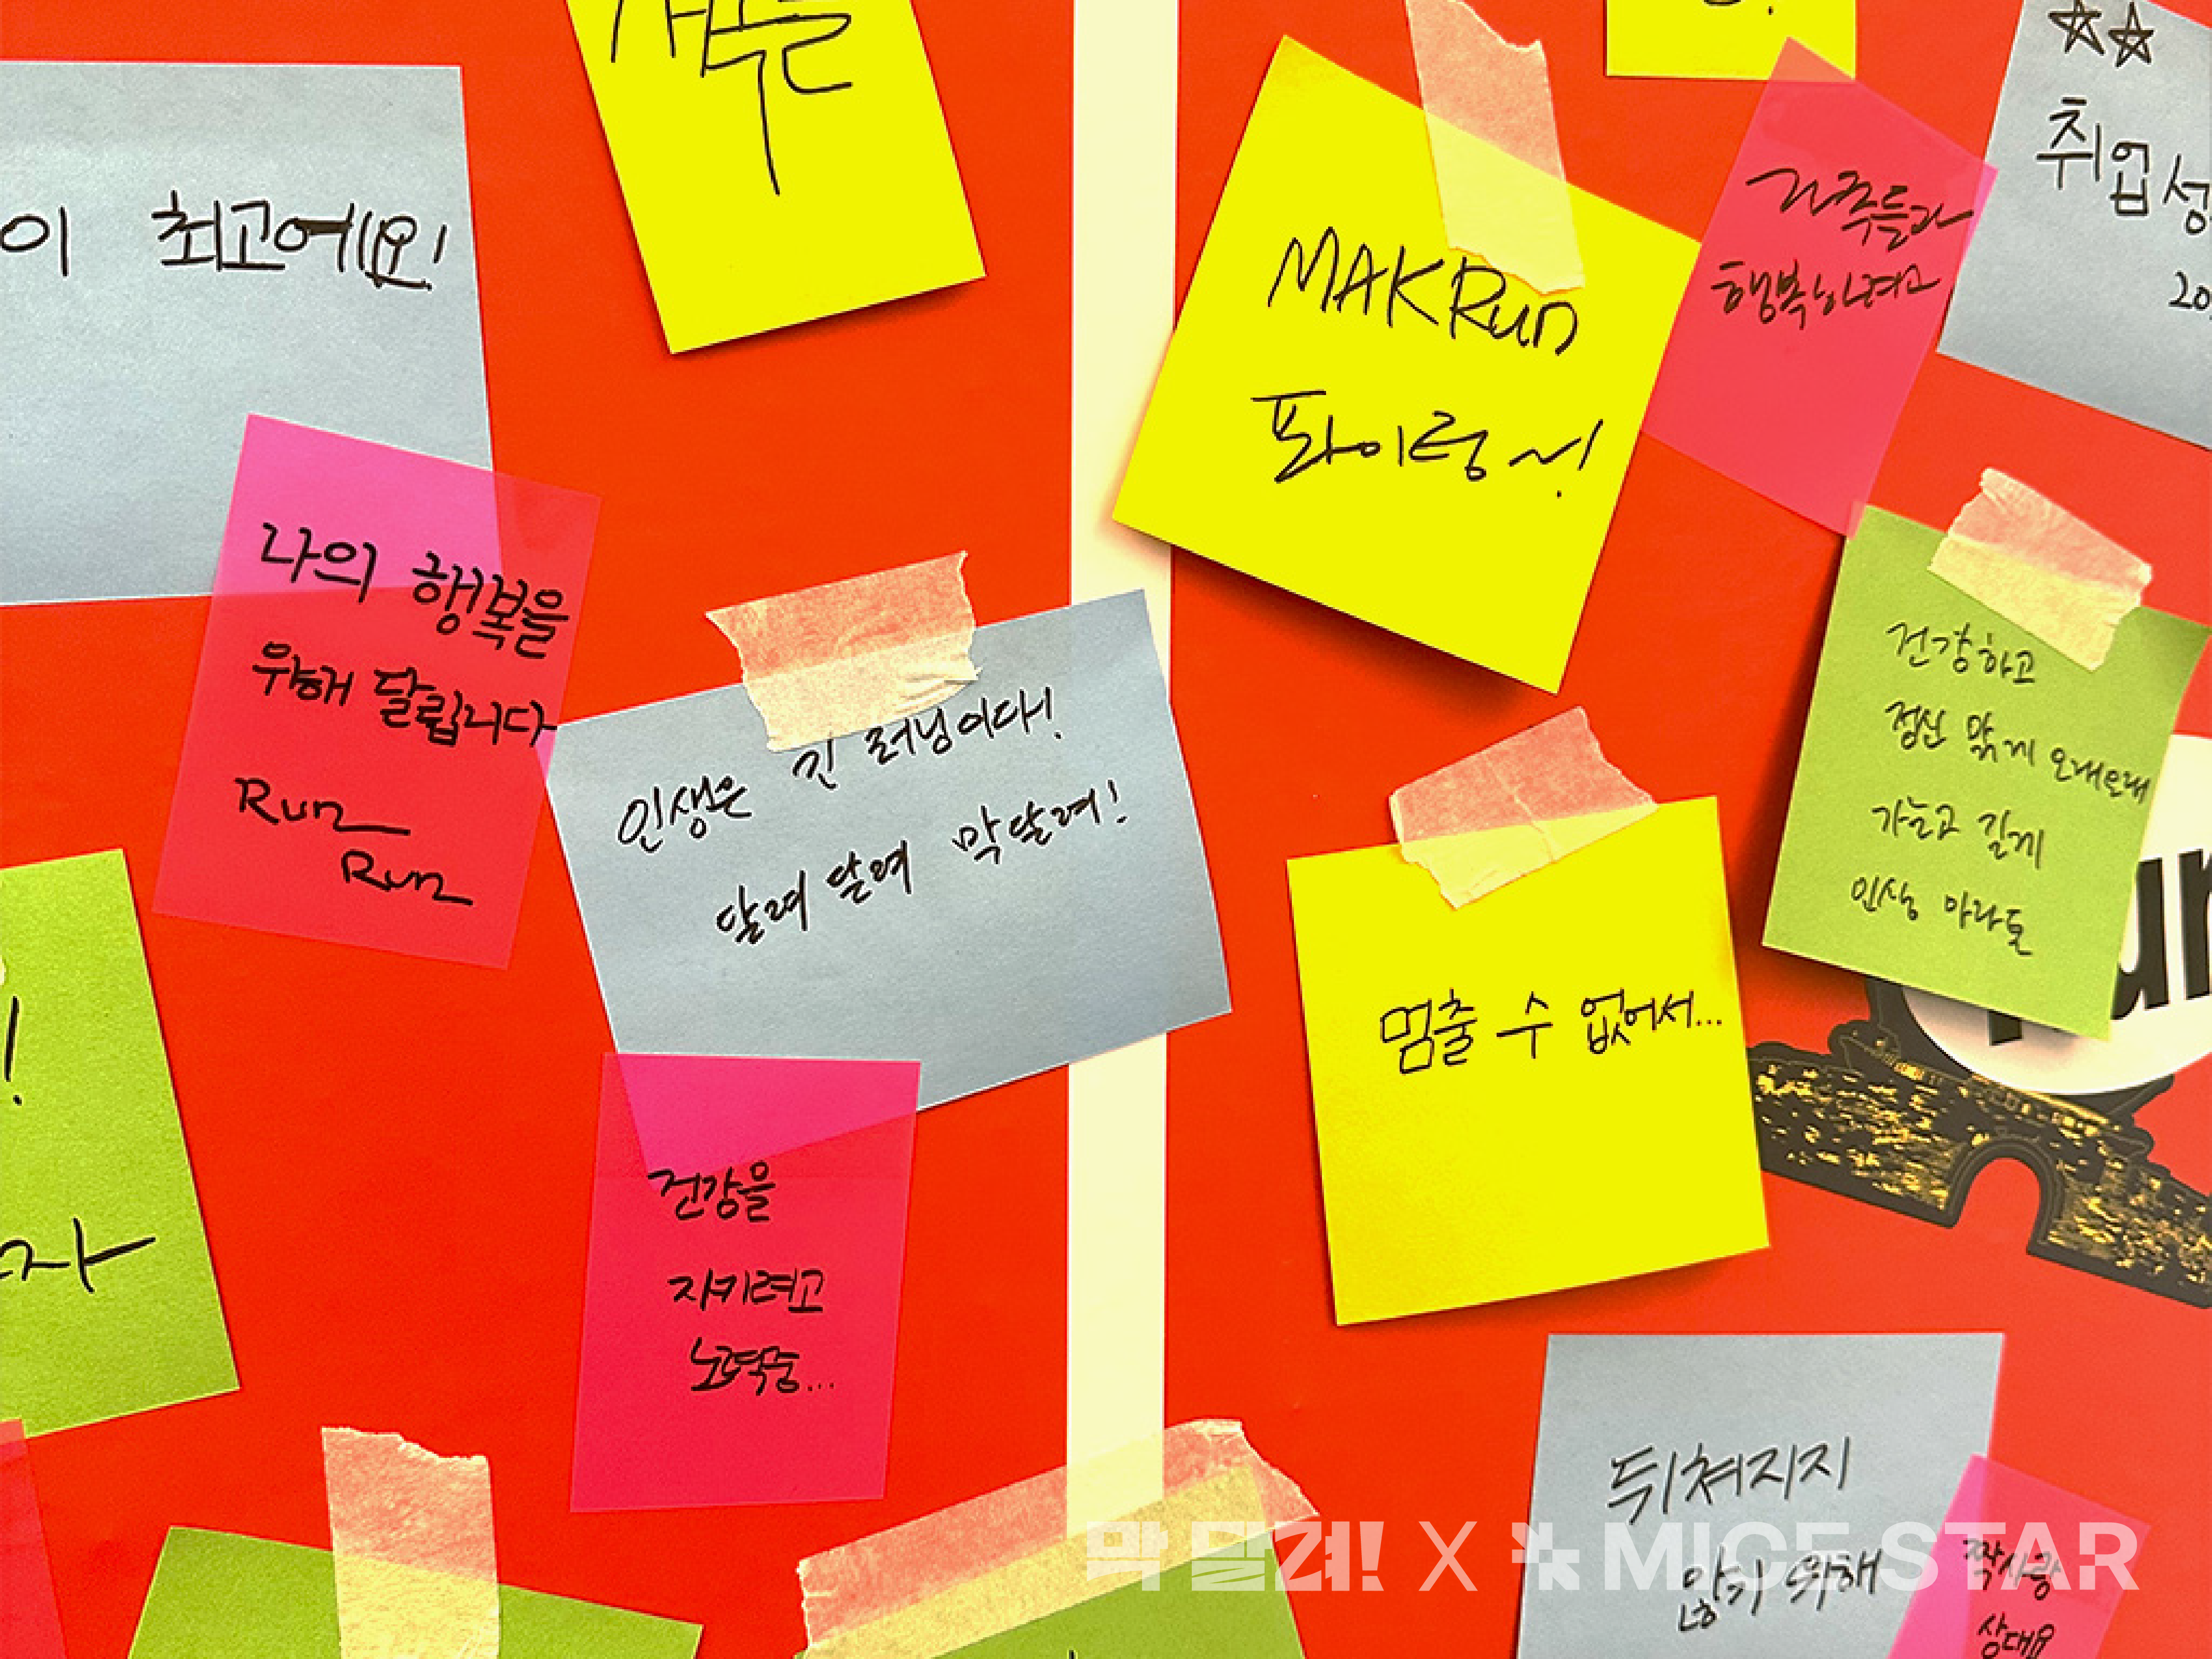 이 최고에요!
나의 행복을
위해 달립니다
Run
Run
인생은 긴 러닝이다!
달려 달려 막달려!
건강을
지키려고
노력중...
MAKRun
파이팅~!
행복하려고
취업성
20
건강하고
정신 맑게 오래오래
가늘고 길게
인생 마라톤
멈출 수 없어서...
뒤쳐지지
않기 위해
짝사랑
상대요
막 달려! X MICE STAR